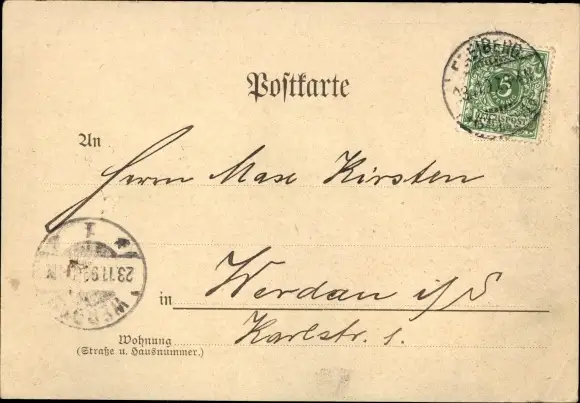 FREIBERG
5
REICHSPOST
Postkarte
An
Herrn Max Kirsten
23.11.9
WERDAU
in Werdau i/S
Karlstr. 1.
Wohnung
(Straße u. Hausnummer.)